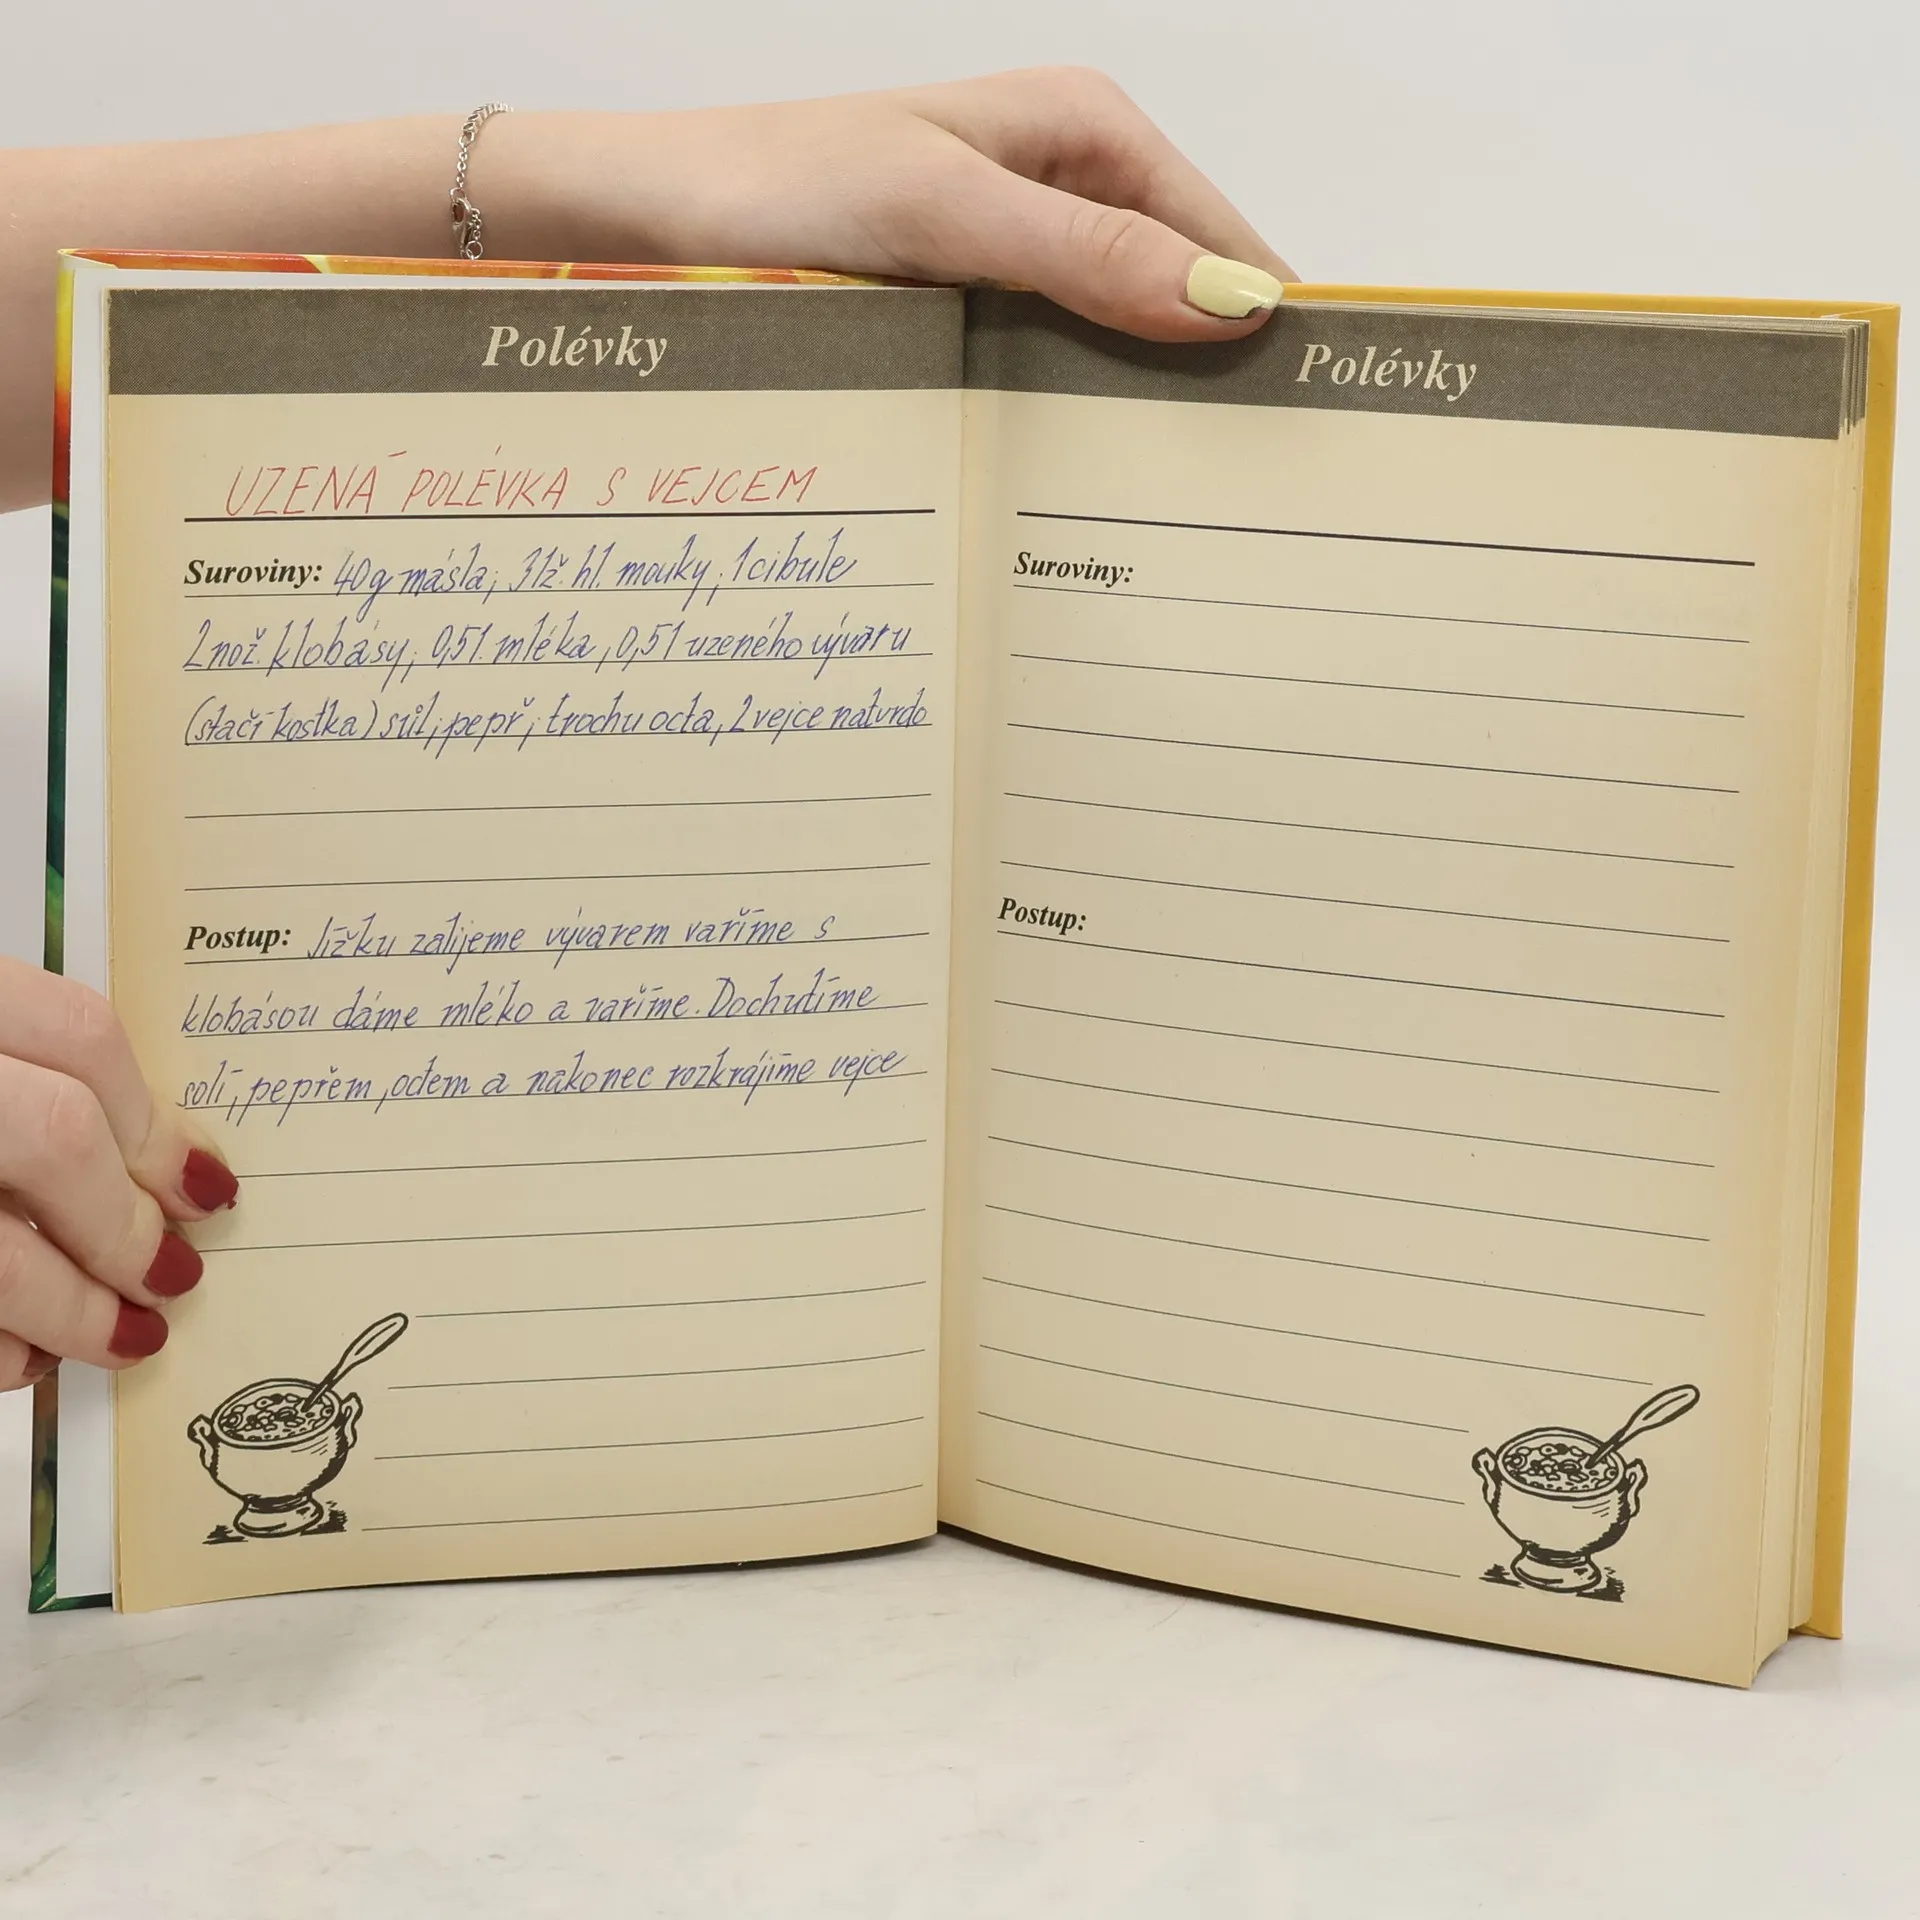 Polévky
UZENÁ POLÉVKA S VEJCEM
Suroviny: 40g másla; 3 lž. hl. mouky; 1 cibule
2 nož. klobásy; 0,5l. mléka, 0,5l uzeného vývaru
(stačí kostka) sůl; pepř; trochu octa, 2 vejce natvrdo
Postup: Jížku zalijeme vývarem vaříme s
klobásou dáme mléko a vaříme. Dochutíme
solí, pepřem, octem a nakonec rozkrájíme vejce
Polévky
Suroviny:
Postup: